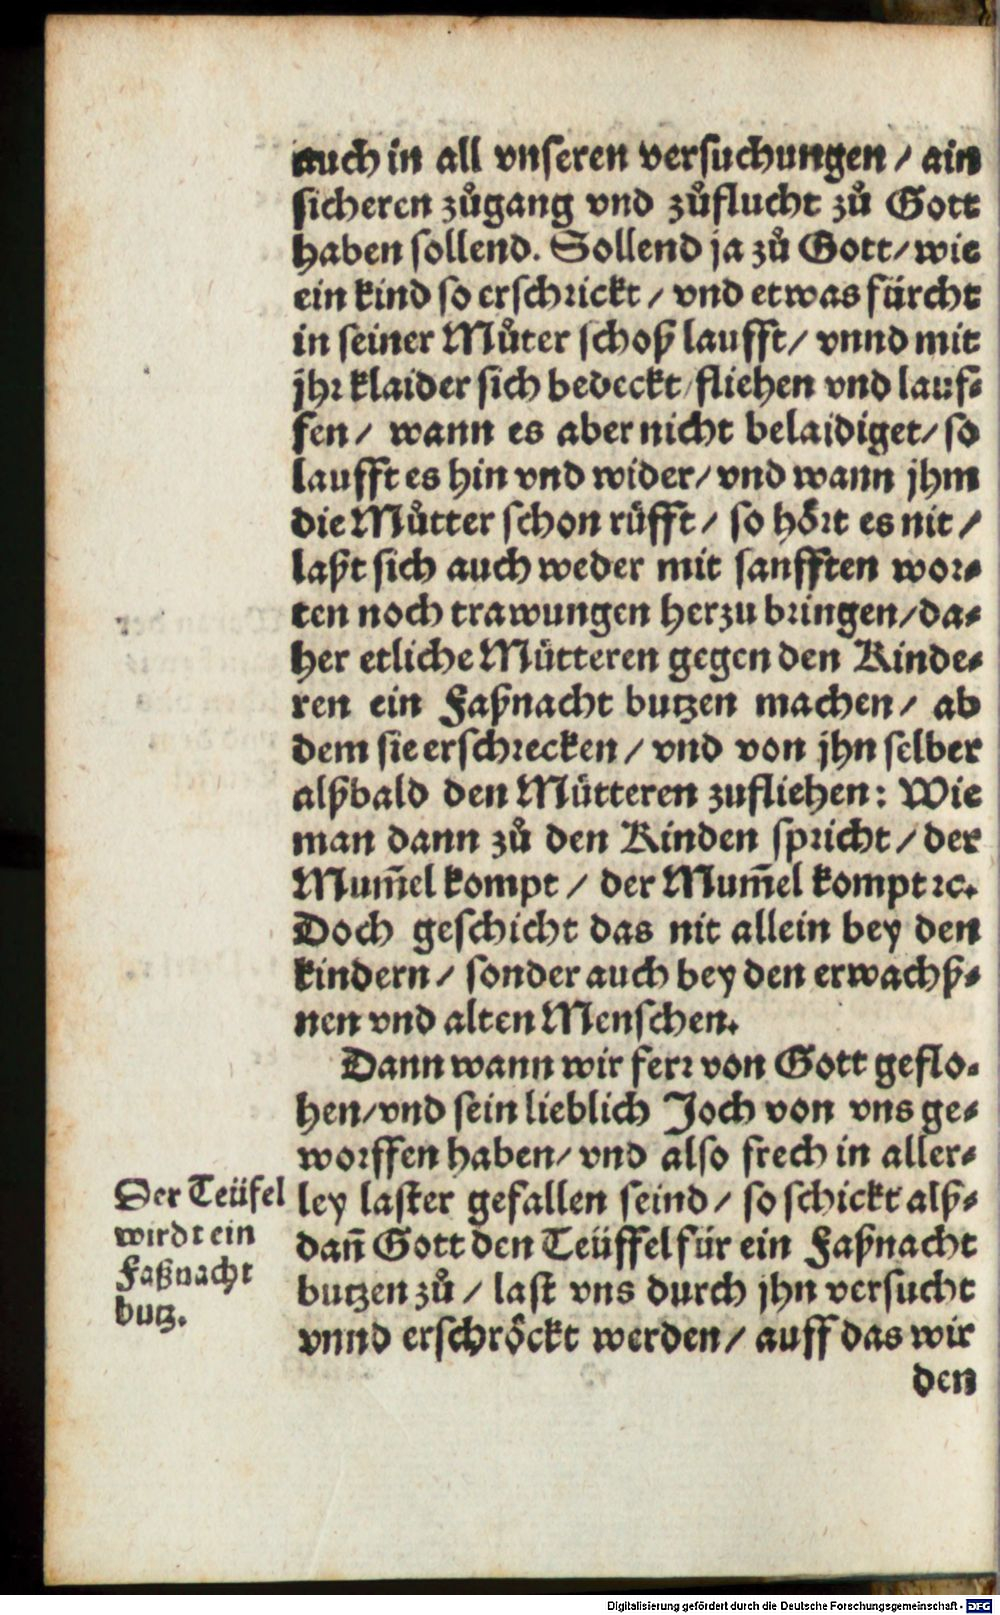 auch in all vnseren versuchungen / ain
sicheren zůgang vnd zůflucht zů Gott
haben sollend. Sollend ja zů Gott / wie
ein kind so erschrickt / vnd etwas fürcht
in seiner Můter schoß laufft / vnnd mit
jhr klaider sich bedeckt / fliehen vnd lauf⸗
fen / wann es aber nicht belaidiget / so
laufft es hin vnd wider / vnd wann jhm
die Můtter schon rüfft / so hört es nit /
laßt sich auch weder mit sanfften wor⸗
ten noch trawungen herzu bringen / da⸗
her etliche Mütteren gegen den Kinde⸗
ren ein Faßnacht butzen machen / ab
dem sie erschrecken / vnd von jhn selber
alßbald den Mütteren zufliehen: Wie
man dann zů den Kinden spricht / der
Mum̄el kompt / der Mum̄el kompt ꝛc.
Doch geschicht das nit allein bey den
kindern / sonder auch bey den erwachß⸗
nen vnd alten Menschen.
Dann wann wir ferr von Gott geflo⸗
hen / vnd sein lieblich Joch von vns ge⸗
worffen haben / vnd also frech in aller⸗
ley laster gefallen seind / so schickt alß⸗
dan̄ Gott den Teüffel für ein Faßnacht
butzen zů / last vns durch jhn versucht
vnnd erschröckt werden / auff das wir
den
Der Teüfel
wirdt ein
Faßnacht
butz.
Digitalisierung gefördert durch die Deutsche Forschungsgemeinschaft - DFG